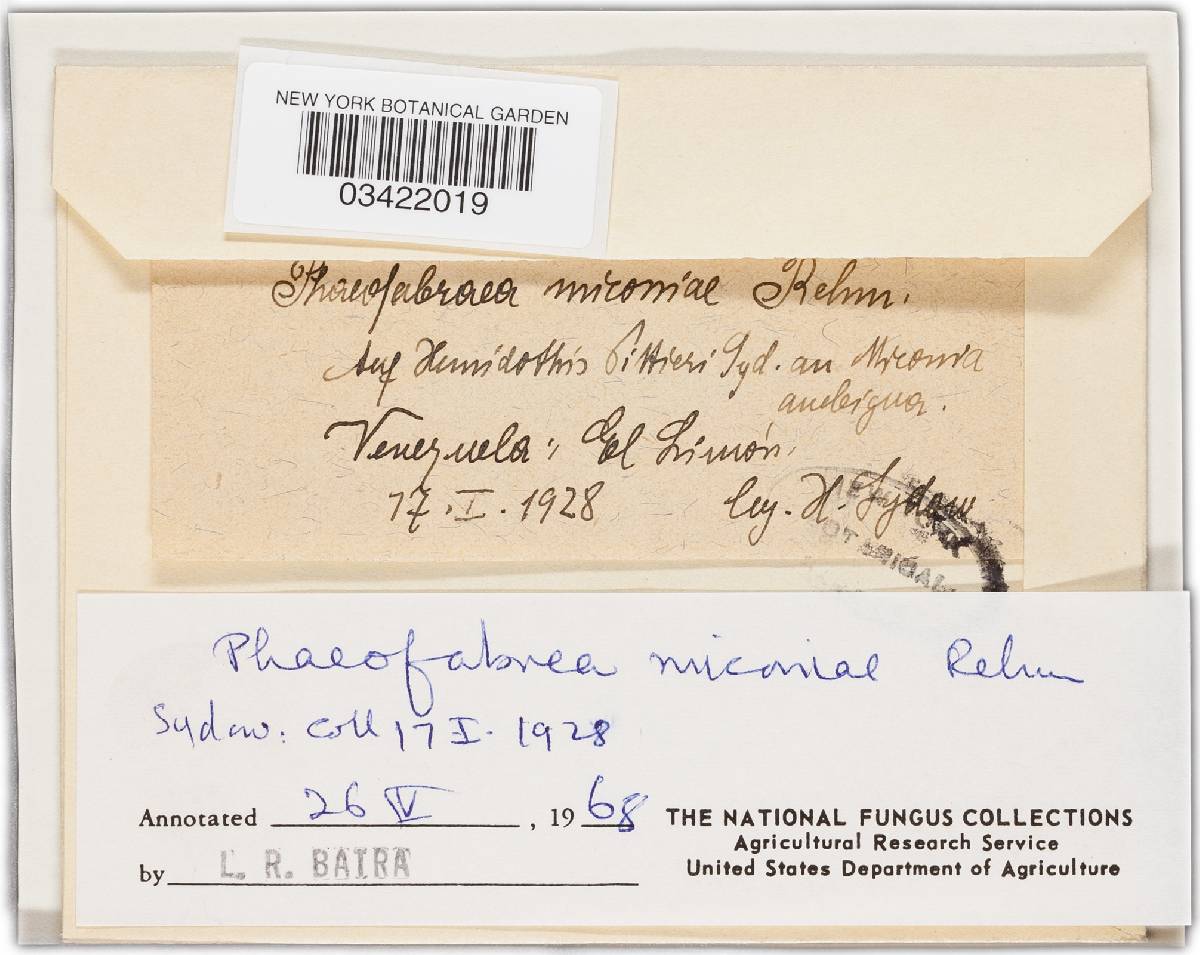 NEW YORK BOTANICAL GARDEN
03422019
Phaeofabraea miconiae Rehm.
Auf Hemidothis Pittieri Syd. an Miconia
ambigua.
Venezuela: El Limón.
17.I.1928 leg. H. Sydow
Phaeofabrea miconiae Rehm
Sydow: Coll 17 I. 1928
Annotated 26 V, 1968
by L. R. BATRA
THE NATIONAL FUNGUS COLLECTIONS
Agricultural Research Service
United States Department of Agriculture